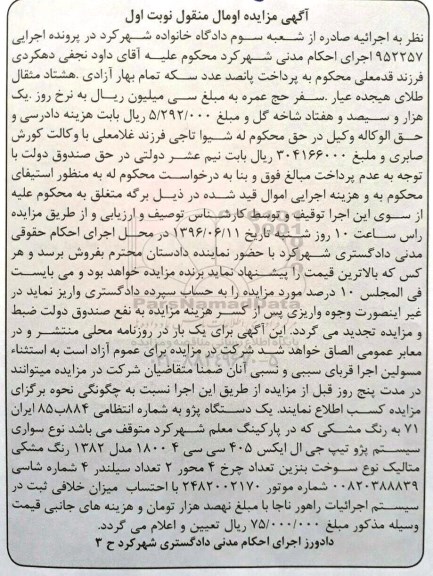 آگهی مزایده اومال منقول نوبت اول
نظر به اجرائیه صادره از شعبه سوم دادگاه خانواده شهرکرد در پرونده اجرایی
۹۵۲۲۵۷ اجرای احکام مدنی شهرکرد محکوم علیه آقای داود نجفی دهکردی
فرزند قدمعلی محکوم به پرداخت پانصد عدد سکه تمام بهار آزادی .هشتاد مثقال
طلای هیجده عیار .سفر حج عمره به مبلغ سی میلیون ریال به نرخ روز .یک
هزار و سیصد و هفتاد شاخه گل و مبلغ ۵/۲۹۲/۰۰۰ ریال بابت هزینه دادرسی و
حق الوکاله وکیل در حق محکوم له شیوا تاجی فرزند غلامعلی با وکالت کورش
صابری و ملبغ ۳۰۴۱۶۶۰۰۰ ریال بابت نیم عشر دولتی در حق صندوق دولت با
توجه به عدم پرداخت مبالغ فوق و بنا به درخواست محکوم له به منظور استیفای
محکوم به و هزینه اجرایی اموال قید شده در ذیل برگه متغلق به محکوم علیه
از سوی این اجرا توقیف و توسط کارشناس توصیف و ارزیابی و از طریق مزایده
راس ساعت ۱۰ روز شنبه تاریخ ۱۳۹۶/۰۶/۱۱ در محل اجرای احکام حقوقی
مدنی دادگستری شهرکرد با حضور نماینده دادستان محترم بفروش برسد و هر
کس که بالاترین قیمت را پیشنهاد نماید برنده مزایده خواهد بود و می بایست
فی المجلس ۱۰ درصد مورد مزایده را به حساب سپرده دادگستری واریز نماید در
غیر اینصورت وجوه واریزی پس از کسر هزینه مزایده به نفع صندوق دولت ضبط
و مزایده تجدید می گردد. این آگهی برای یک بار در روزنامه محلی منتشر و در
معابر عمومی الصاق خواهد شد شرکت در مزایده برای عموم آزاد است به استثناء
مسولین اجرا قربای سببی و نسبی آنان ضمنا متقاضیان شرکت در مزایده میتوانند
در مدت پنج روز قبل از مزایده از طریق این اجرا نسبت به چگونگی نحوه برگزای
مزایده کسب اطلاع نمایند. یک دستگاه پژو به شماره انتظامی ۸۸۴ب۸۵ ایران
۷۱ به رنگ مشکی که در پارکینگ معلم شهرکرد متوقف می باشد نوع سواری
سیستم پژو تیپ جی ال ایکس ۴۰۵ سی سی ۱۸۰۰ مدل ۱۳۸۲ رنگ مشکی
متالیک نوع سوخت بنزین تعداد چرخ ۴ محور ۲ تعداد سیلندر ۴ شماره شاسی
۰۰۸۲۰۳۸۸۸۳۹ شماره موتور ۲۴۸۲۰۰۲۱۷۰ با احتساب میزان خلافی ثبت در
سیستم اجرائیات راهور ناجا با مبلغ نهصد هزار تومان و هزینه های جانبی قیمت
وسیله مذکور مبلغ ۷۵/۰۰۰/۰۰۰ ریال تعیین و اعلام می گردد.
دادورز اجرای احکام مدنی دادگستری شهرکرد ح ۳
ParsNamadData